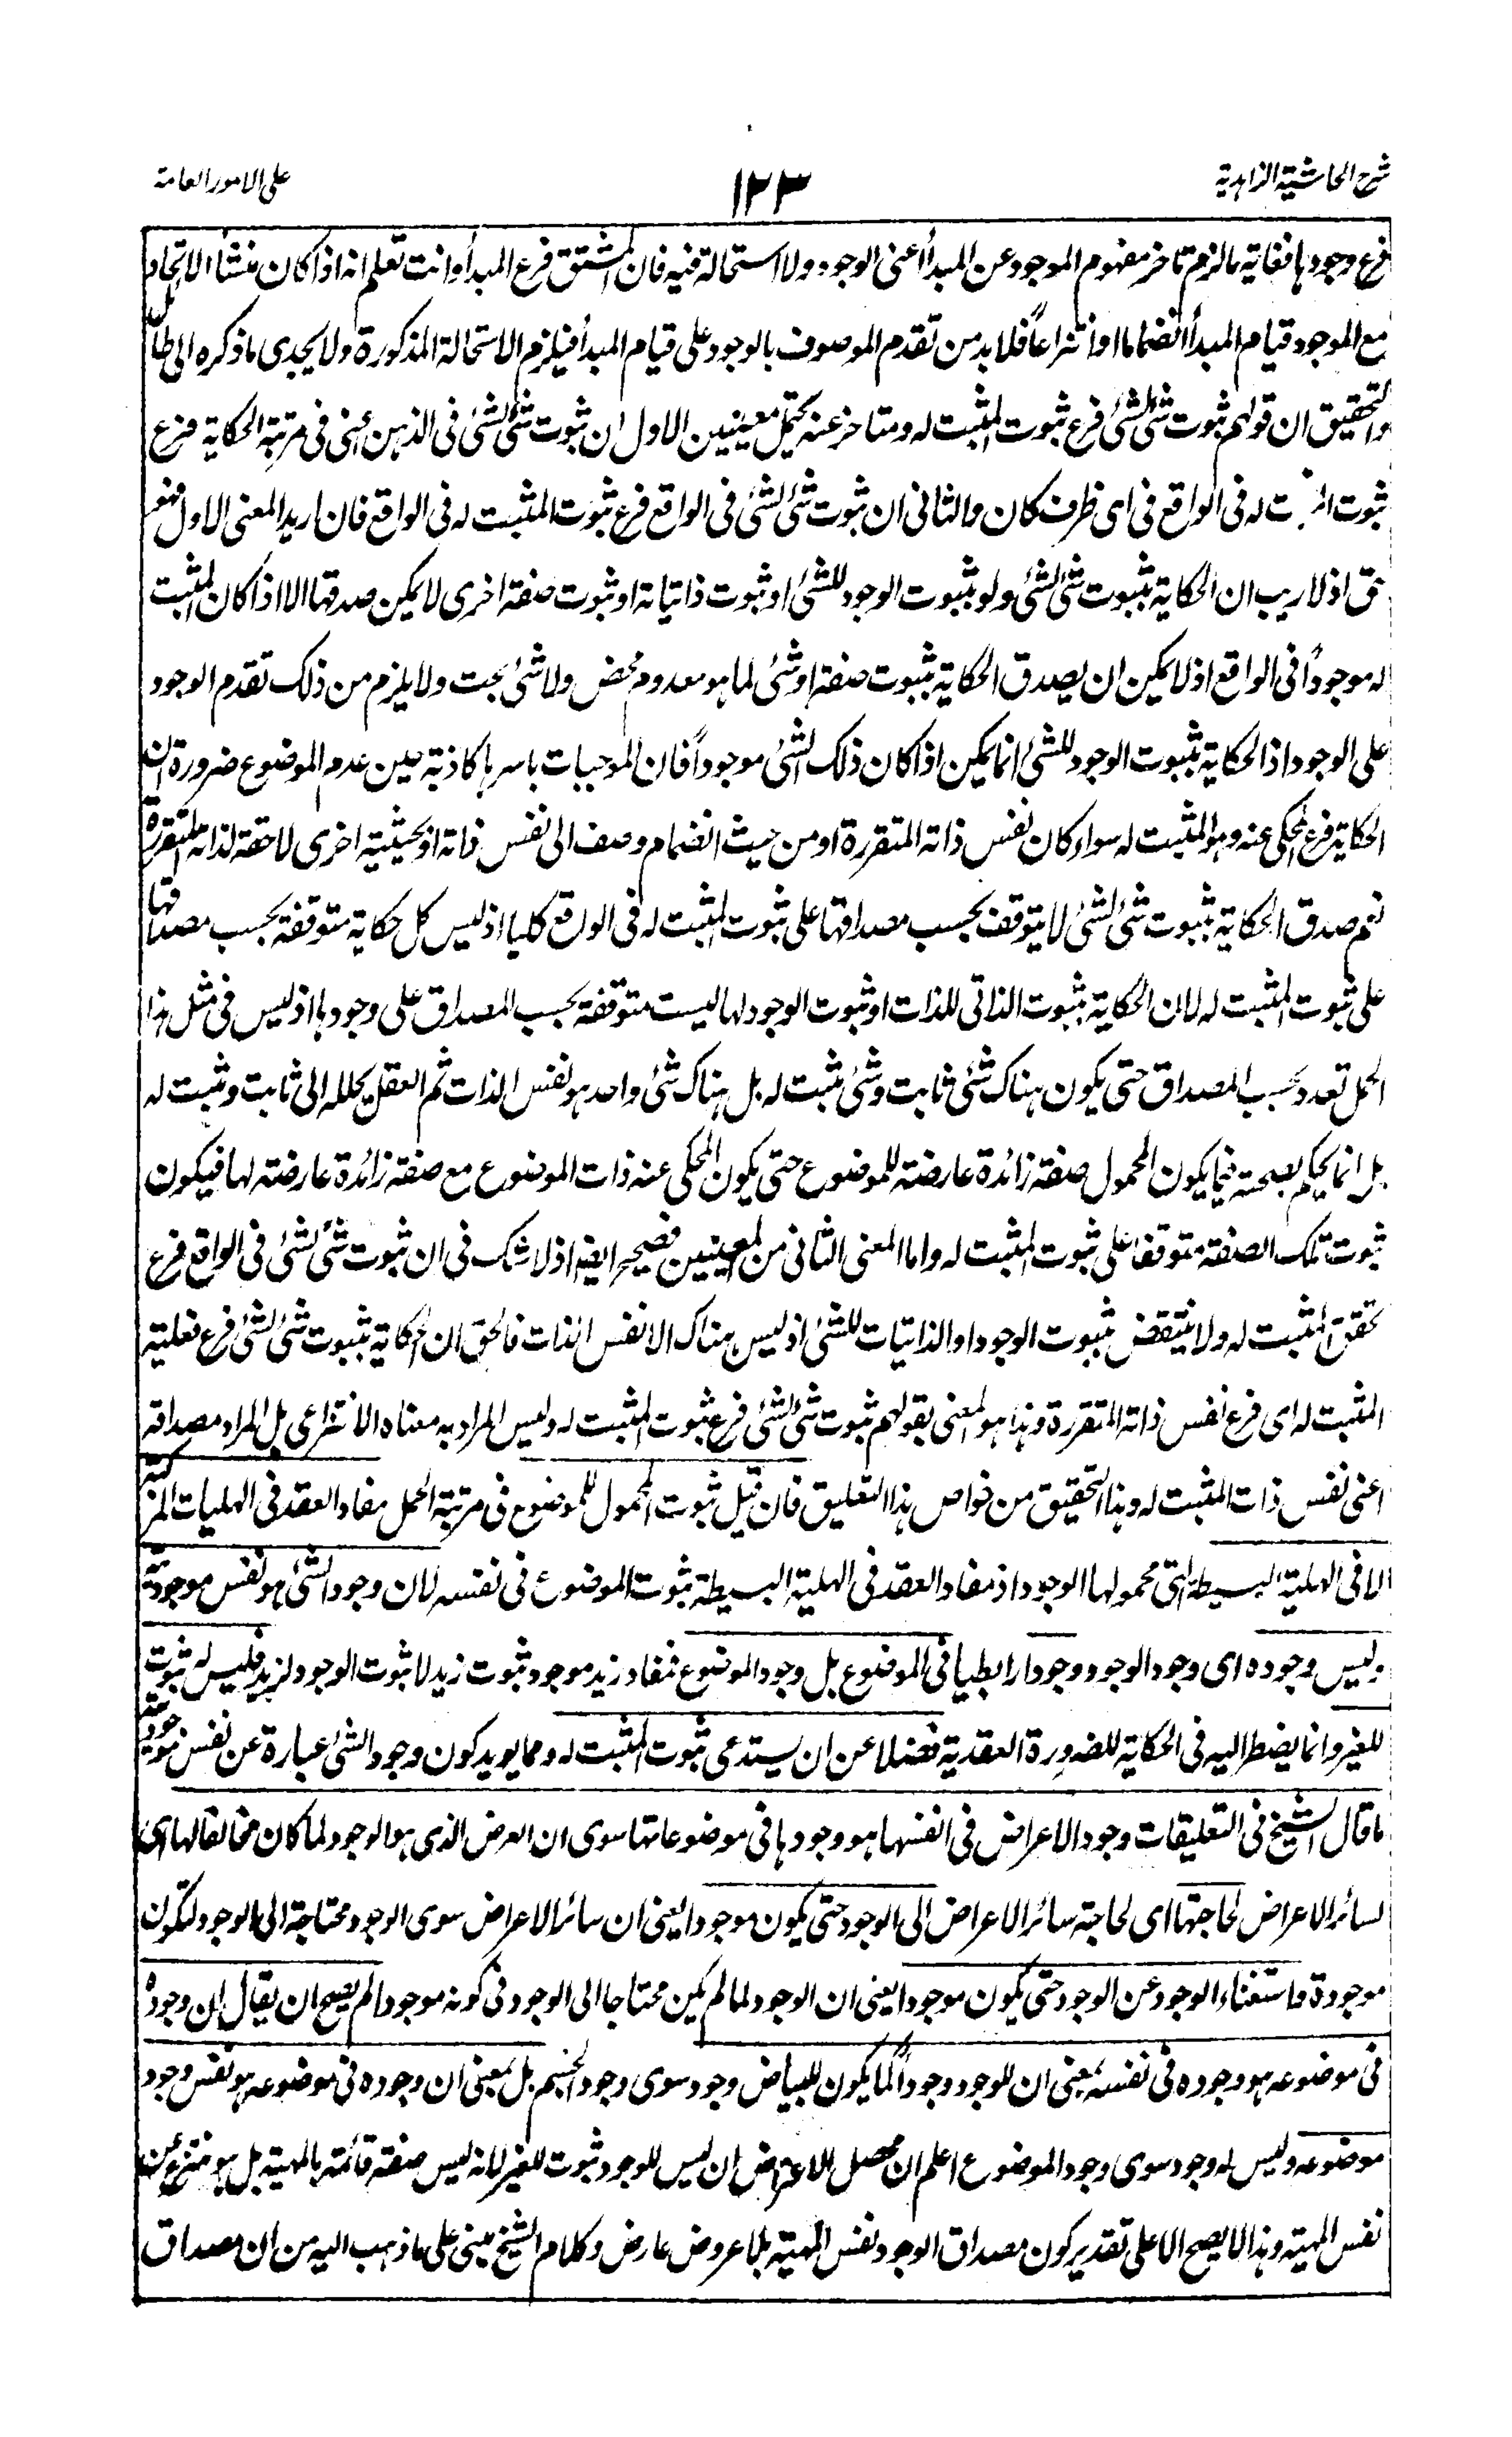 شرح الحاشية الزاهدية
١٢٣
على الامور العامة
فرع وجودها فغاية مالزم تاخر مفهوم الموجود عن المبدأ اعنى الوجود ولا استحالة فيه فان المشتق فرع المبدأ وانت تعلم انه اذا كان منشأ الاتحاد
مع الموجود قيام المبدأ انضماما او انتزاعاً فلا بد من تقدم الموصوف بالوجود على قيام المبدأ فيلزم الاستحالة المذكورة ولا يجدى ما ذكره الى طائل
والتحقيق ان قولهم ثبوت شئ لشئ فرع ثبوت المثبت له ومتاخر عنه يحتمل معنيين الاول ان ثبوت شئ لشئ فى الذهن اعنى فى مرتبة الحكاية فرع
ثبوت المثبت له فى الواقع فى اى ظرف كان والثانى ان ثبوت شئ لشئ فى الواقع فرع ثبوت المثبت له فى الواقع فان اريد المعنى الاول فهو
حق اذ لا ريب ان الحكاية بثبوت شئ لشئ ولو بثبوت الوجود للشئ او ثبوت ذاتياته او ثبوت صفة اخرى لا يمكن صدقها الا اذا كان المثبت
له موجوداً فى الواقع اذ لا يمكن ان يصدق الحكاية بثبوت صفة او شئ لما هو معدوم محض ولا شئ بحت ولا يلزم من ذلك تقدم الوجود
على الوجود اذ الحكاية بثبوت الوجود للشئ انما يمكن اذا كان ذلك الشئ موجوداً فان الموجبات باسرها كاذبة حين عدم الموضوع ضرورة ان
الحكاية فرع المحكى عنه وهو المثبت له سواء كان نفس ذاته المتقررة او من حيث انضمام وصف الى نفس ذاته او بحيثية اخرى لاحقة لذاته المتقررة
نعم صدق الحكاية بثبوت شئ لشئ لا يتوقف بحسب مصداقها على ثبوت المثبت له فى الواقع كليا اذ ليس كل حكاية متوقفة بحسب مصداقها
على ثبوت المثبت له لان الحكاية بثبوت الذاتى للذات او ثبوت الوجود لها ليست متوقفة بحسب المصداق على وجودها اذ ليس فى مثل هذا
الحمل تعدد بحسب المصداق حتى يكون هناك شئ ثابت وشئ مثبت له بل هناك شئ واحد هو نفس الذات ثم العقل يحلله الى ثابت ومثبت له
بل انما يحكم بصحته فيما يكون المحمول صفة زائدة عارضة للموضوع حتى يكون المحكى عنه ذات الموضوع مع صفة زائدة عارضة لها فيكون
ثبوت تلك الصفة متوقفا على ثبوت المثبت له واما المعنى الثانى من المعنيين فصحيح ايضا اذ لا شك فى ان ثبوت شئ لشئ فى الواقع فرع
تحقق المثبت له ولا ينتقض بثبوت الوجود او الذاتيات للشئ اذ ليس هناك الا نفس الذات فالحق ان الحكاية بثبوت شئ لشئ فرع فعلية
المثبت له اى فرع نفس ذاته المتقررة وهذا هو المعنى بقولهم ثبوت شئ لشئ فرع ثبوت المثبت له وليس المراد به معناه الانتزاعى بل المراد مصداقه
اعنى نفس ذات المثبت له وهذا التحقيق من خواص هذا التعليق فان قيل ثبوت المحمول للموضوع فى مرتبة الحمل مفاد العقد فى الهليات المركبة
لا فى الهلية البسيطة التى محمولها الوجود اذ مفاد العقد فى الهلية البسيطة ثبوت الموضوع فى نفسه لان وجود الشئ هو نفس موجوديته
وليس وجوده اى وجود الوجود وجودا رابطيا فى الموضوع بل وجود الموضوع فمفاد زيد موجود ثبوت زيد لا ثبوت الوجود لزيد فليس له ثبوت
للغير وانما يضطر اليه فى الحكاية للضرورة العقدية فضلا عن ان يستدعى ثبوت المثبت له ومما يويد كون وجود الشئ عبارة عن نفس موجوديته
ما قال الشيخ فى التعليقات وجود الاعراض فى انفسها هو وجودها فى موضوعاتها سوى ان العرض الذى هو الوجود لما كان مخالفا لها اى
لسائر الاعراض لحاجتها اى لحاجة سائر الاعراض الى الوجود حتى يكون موجودا يعنى ان سائر الاعراض سوى الوجود محتاجة الى الوجود لتكون
موجودة واستغناء الوجود عن الوجود حتى يكون موجودا يعنى ان الوجود لما لم يكن محتاجا الى الوجود فى كونه موجودا لم يصح ان يقال ان وجوده
فى موضوعه هو وجوده فى نفسه بمعنى ان للوجود وجوداً كما يكون للبياض وجود سوى وجود الجسم بل بمعنى ان وجوده فى موضوعه هو نفس وجود
موضوعه وليس له وجود سوى وجود الموضوع اعلم ان محصل الاعتراض ان ليس للوجود ثبوت للغير لانه ليس صفة قائمة بالمهية بل هو منتزع عن
نفس المهية وهذا لا يصح الا على تقدير كون مصداق الوجود نفس المهية بلا عروض عارض وكلام الشيخ مبنى على ما ذهب اليه من ان مصداق